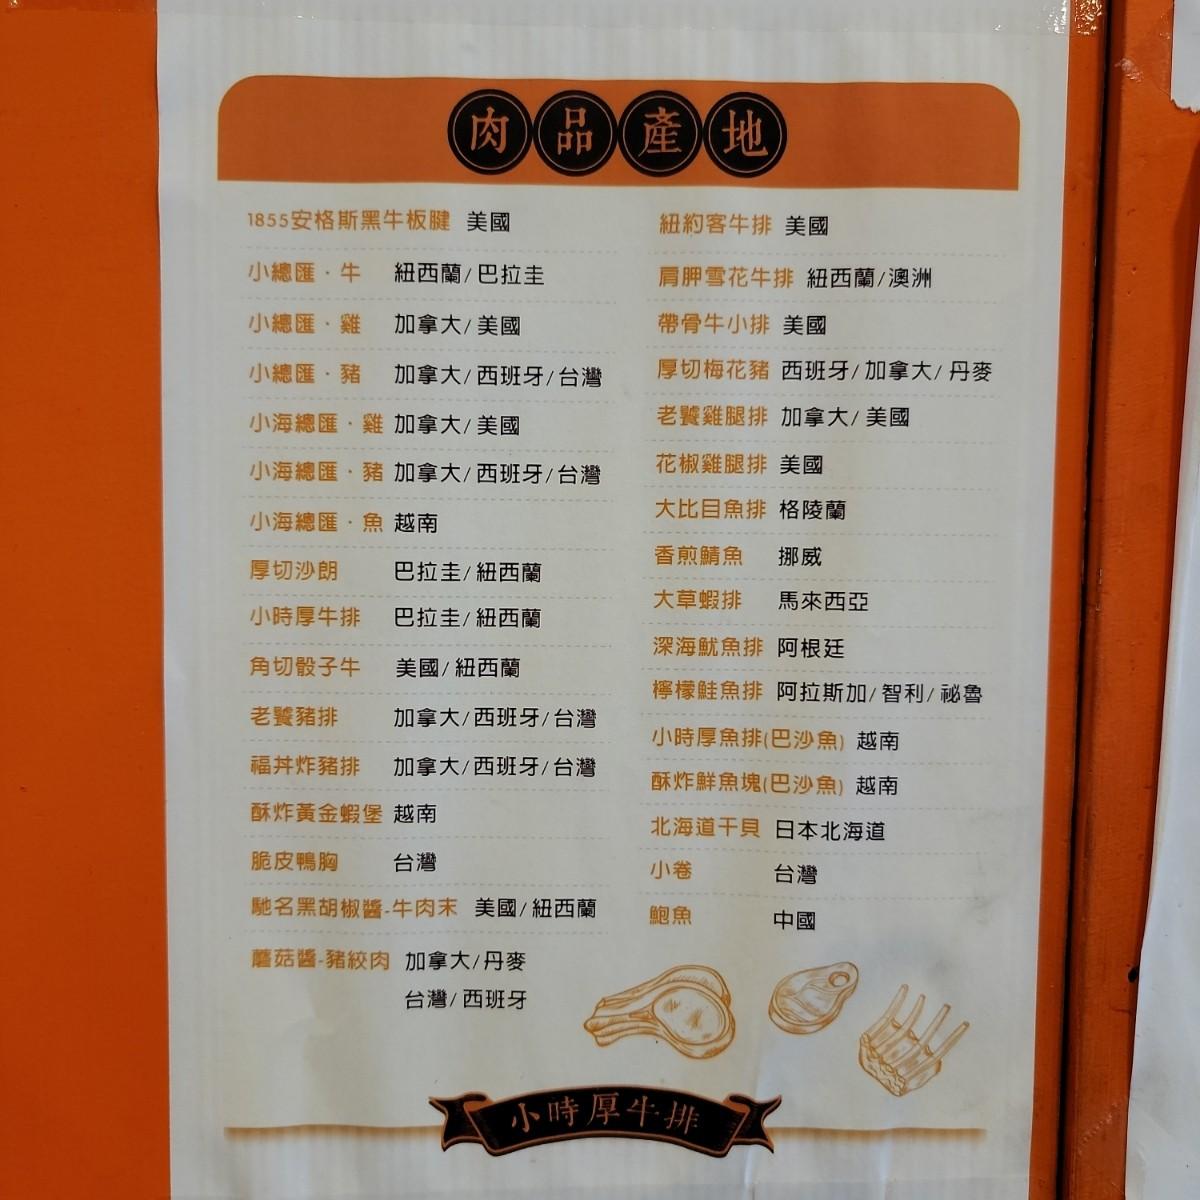 肉品產地
1855安格斯黑牛板腱 美國
小總匯·牛 紐西蘭/巴拉圭
小總匯·雞 加拿大/美國
小總匯·豬 加拿大/西班牙/台灣
小海總匯·雞 加拿大/美國
小海總匯·豬 加拿大/西班牙/台灣
小海總匯·魚 越南
厚切沙朗 巴拉圭/紐西蘭
小時厚牛排 巴拉圭/紐西蘭
角切骰子牛 美國/紐西蘭
老饕豬排 加拿大/西班牙/台灣
福丼炸豬排 加拿大/西班牙/台灣
酥炸黃金蝦堡 越南
脆皮鴨胸 台灣
馳名黑胡椒醬-牛肉末 美國/紐西蘭
蘑菇醬-豬絞肉 加拿大/丹麥
台灣/西班牙
紐約客牛排 美國
肩胛雪花牛排 紐西蘭/澳洲
帶骨牛小排 美國
厚切梅花豬 西班牙/加拿大/丹麥
老饕雞腿排 加拿大/美國
花椒雞腿排 美國
大比目魚排 格陵蘭
香煎鯖魚 挪威
大草蝦排 馬來西亞
深海魷魚排 阿根廷
檸檬鮭魚排 阿拉斯加/智利/祕魯
小時厚魚排(巴沙魚) 越南
酥炸鮮魚塊(巴沙魚) 越南
北海道干貝 日本北海道
小卷 台灣
鮑魚 中國
小時厚牛排